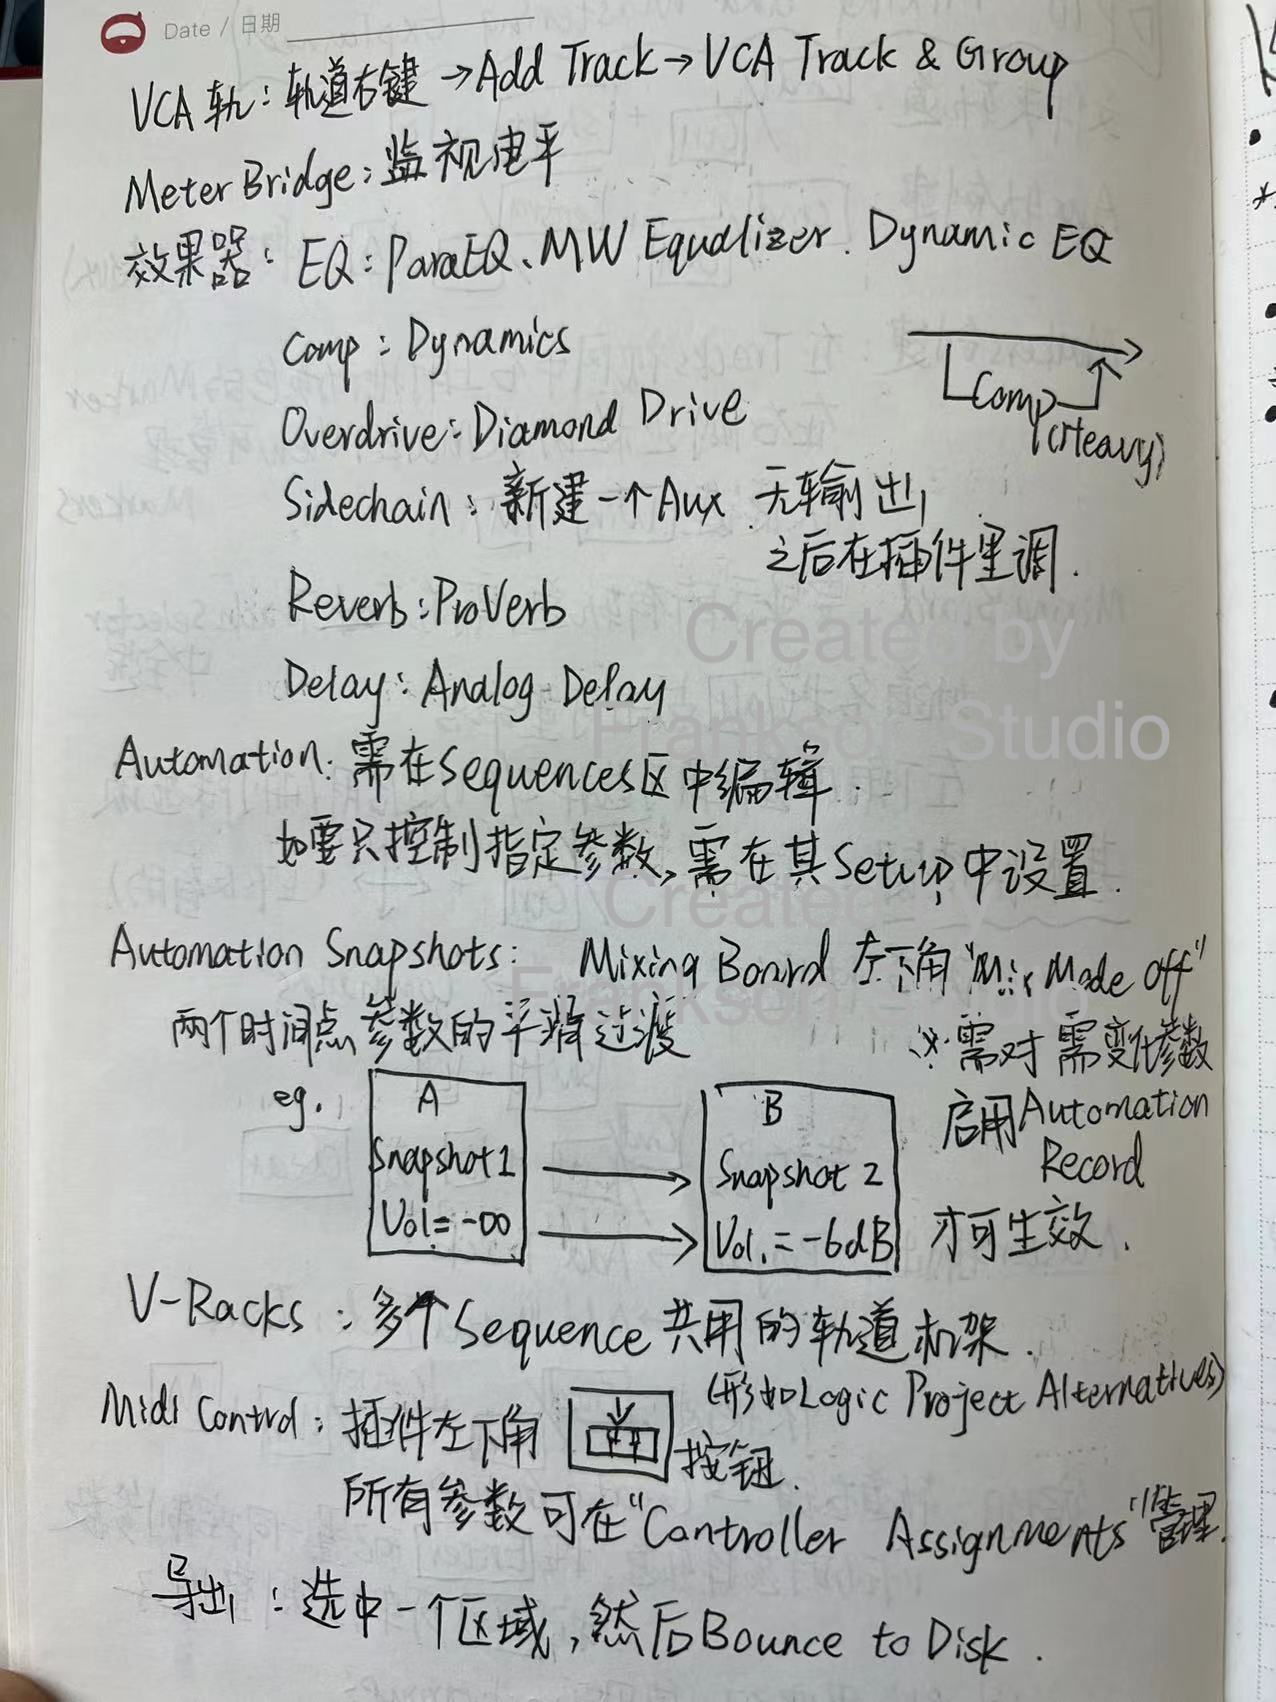 Date / 日期
VCA 轨：轨道右键 →Add Track→VCA Track & Group
Meter Bridge：监视电平
效果器：EQ：ParaEQ、MW Equalizer、Dynamic EQ
Comp：Dynamics
Comp
(Heavy)
Overdrive：Diamond Drive
Sidechain：新建一个Aux 无输出，
之后在插件里调.
Reverb：ProVerb
Created by
Delay：Analog Delay
Frankson Studio
Automation：需在Sequences区中编辑.
如要只控制指定参数，需在其Setup中设置.
Created by
Automation Snapshots： Mixing Board 左下角 "Mix Mode off"
Frankson Studio
两个时间点参数的平滑过渡
※需对需变化参数
启用Automation
Record
才可生效.
eg.
A
Snapshot 1
Vol.=-∞
B
Snapshot 2
Vol.=-6dB
V-Racks：多个Sequence共用的轨道机架.
(形如Logic Project Alternatives)
Midi Control：插件左下角 按钮.
所有参数可在"Controller Assignments"管理.
导出：选中一个区域，然后Bounce to Disk.